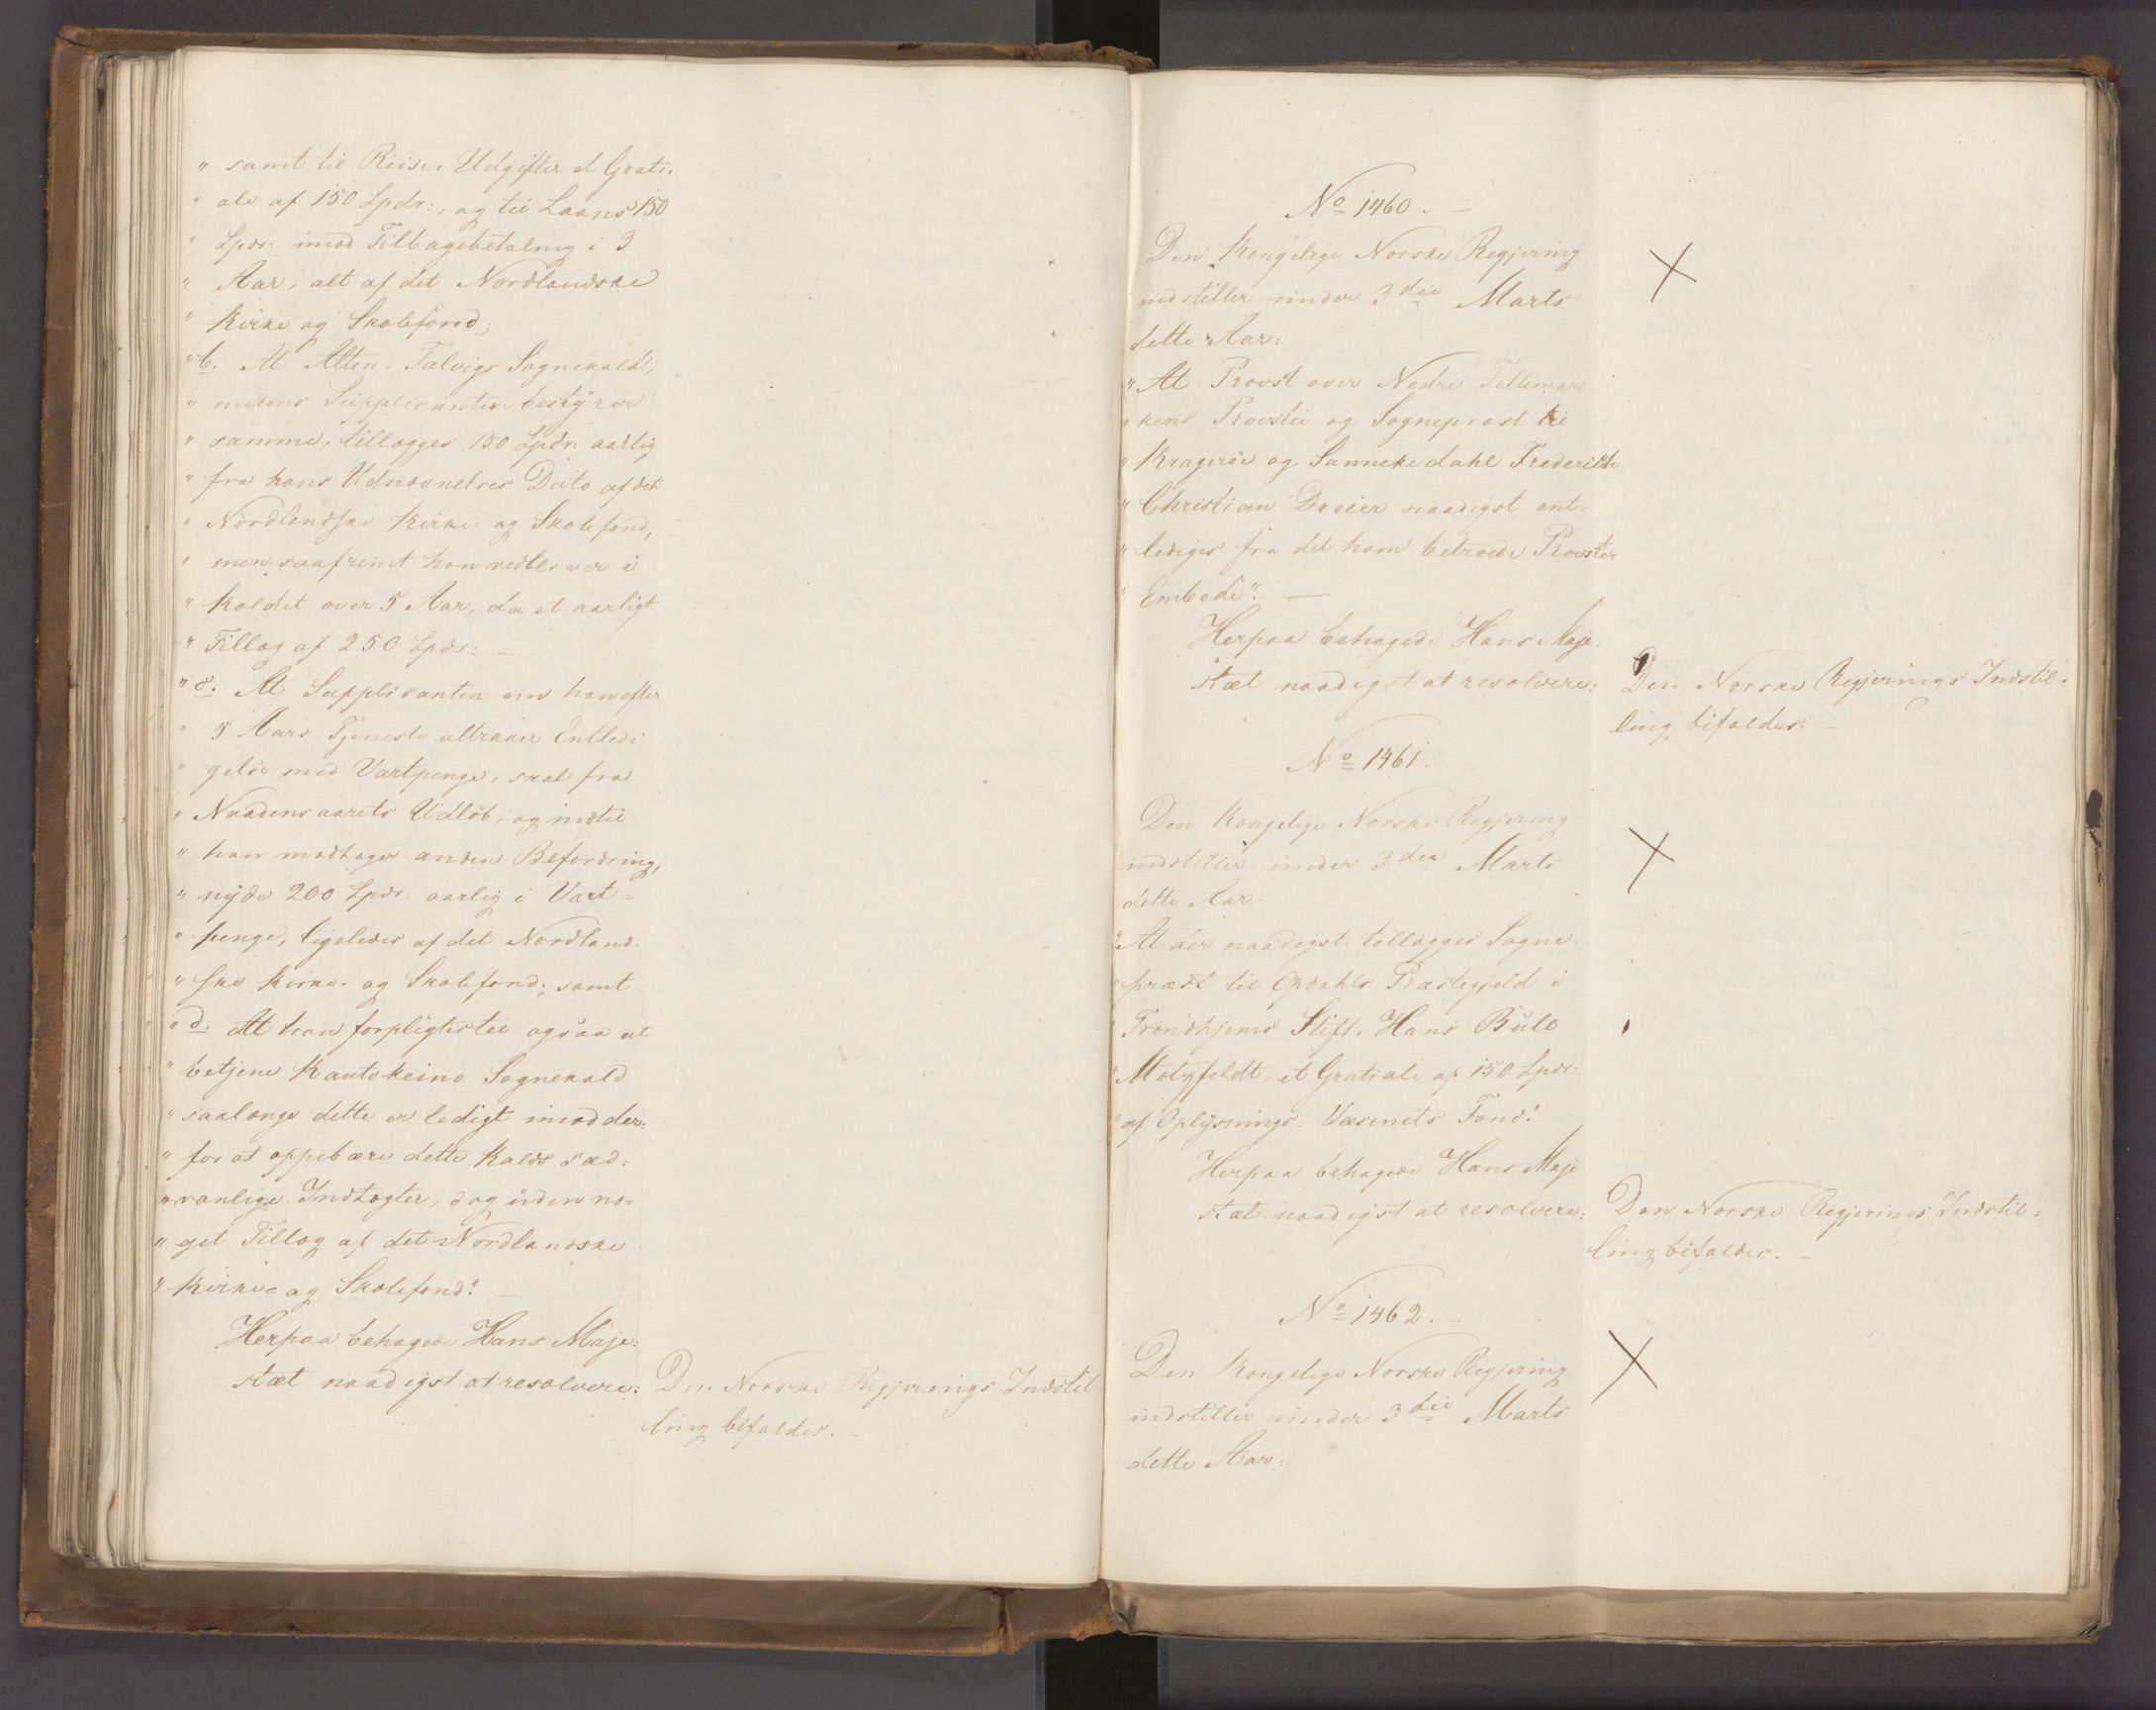 " samt til Reise-Udgifter et Grati-
" ale af 150 Spdr:, og til Laans 150
" Spdr: imod Tilbagebetaling i 3
" Aar, alt af det Nordlandske
" Kirke og Skolefond;
" b. At Alten-Talvigs Sognekald,
" medens Supplicanten bestyrer
" samme, tillægges 150 Spdr: aarlig
" fra hans Udnævnelses Dato af det
" Nordlandske Kirke og Skolefond,
" men saafremt han vedbliver i
" Kaldet over 5 Aar, da et aarligt
" Tillæg af 250 Spdr: —
" c. At Supplicanten om han efter
" 5 Aars Tjeneste attraaer Entledi-
" gelse med Vartpenge, skal fra
" Naadensaarets Udløb, og indtil
" han modtager anden Befordring,
" nyde 200 Spdr: aarlig i Vart-
" penge, ligeledes af det Nordland-
" ske Kirke- og Skolefond; samt
" d. At han forpligtes til ogsaa at
" betjene Kautokeino Sognekald
" saalænge dette er ledigt imod der-
" for at oppebære dette Kalds sæd-
" vanlige Indtægter, dog uden no-
" get Tillæg af det Nordlandske
" Kirke- og Skolefond." —
Herpaa behagede Hans Maje-
stæt naadigst at resolvere:
Den Norske Regjerings Indstil-
ling bifaldes. —
No 1460. —
Den Kongelige Norske Regjering
indstiller under 3die Marts
dette Aar:
" At Provst over Nedre Tellemar-
" kens Provstie og Sognepræst til
" Kragerøe og Sannekedahl Frederich
" Christian Draier naadigst ent-
" lediges fra det ham betroede Provste-
" Embede". —
Herpaa behagede Hans Maje-
stæt naadigst at resolvere:
Den Norske Regjerings Indstil-
ling bifaldes. —
No 1461.
Den Kongelige Norske Regjering
indstiller under 3die Marts
dette Aar.
" At der naadigst tillægges Sogne-
" præst til Opdahls Præstegjeld i
" Trondhjems Stift, Hans Bull
" Motzfeldt, et Gratiale af 150 Spdr.
" af Oplysnings-Væsenets Fond."
Herpaa behagede Hans Maje-
stæt naadigst at resolvere:
Den Norske Regjerings Indstil-
ling bifaldes. —
No 1462. —
Den Kongelige Norske Regjering
indstiller under 3die Marts
dette Aar: